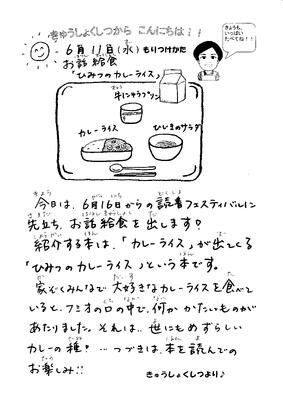 きゅうしょくしつから こんにちは!!
きょうも、
いっぱい
たべてね!!
6月11日(水) もりつけかた
お話給食
「ひみつのカレーライス」
牛にゅうプリン
カレーライス
ひじきのサラダ
今日は、6月16日からの読書フェスティバルに
先立ち、お話給食を出します!
紹介する本は、「カレーライス」が出てくる
「ひみつのカレーライス」という本です。
家ぞくみんなで大好きなカレーライスを食べて
いると、フミオの口の中で、何かかたいものがが
あたりました。それは、世にもめずらしい
カレーの種!…つづきは、本を読んでの
お楽しみ!!
きゅうしょくしつより♪